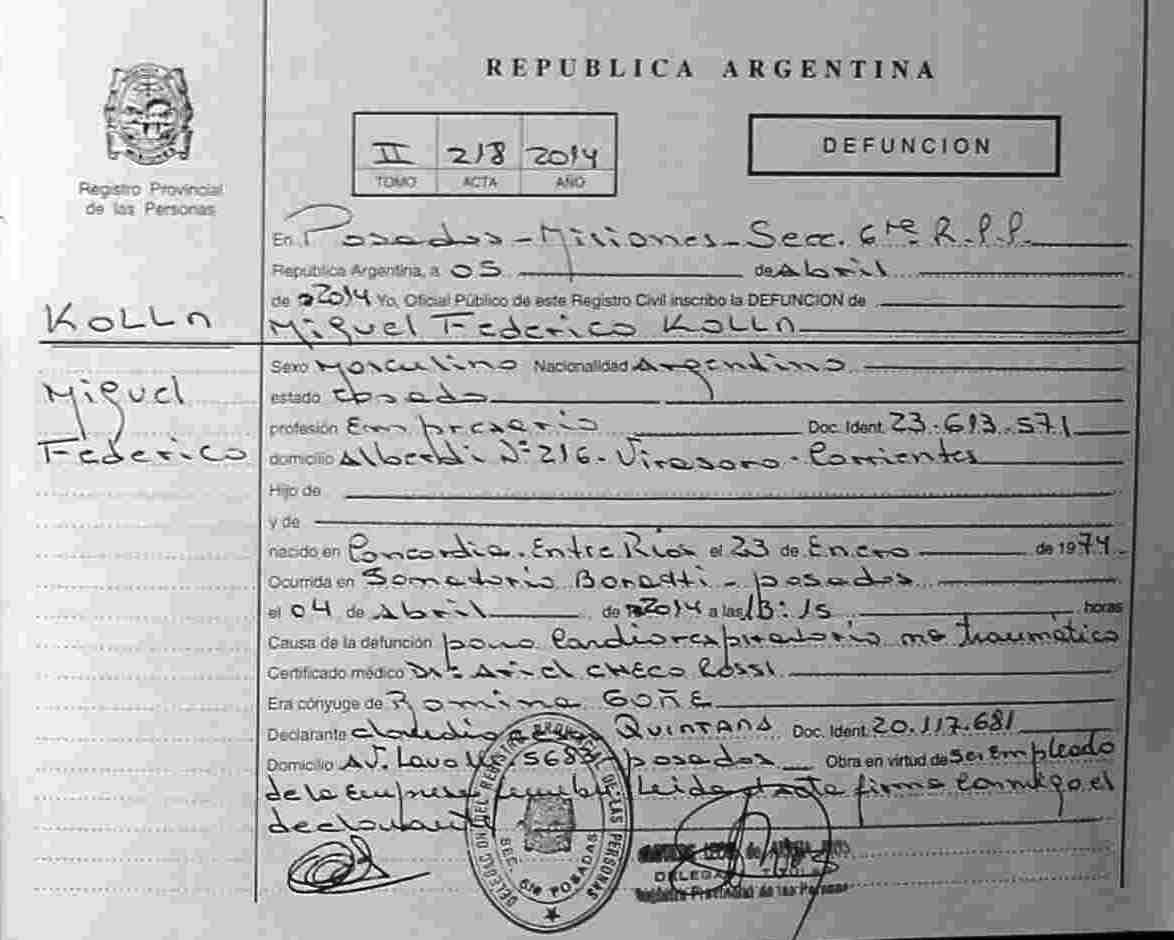 REPUBLICA ARGENTINA
Registro Provincial
de las Personas
II 218 2014
TOMO ACTA AÑO
DEFUNCION
En Posadas - Misiones - Secc. 6ta R.P.P.
República Argentina, a 05 de Abril
de 2014 Yo, Oficial Público de este Registro Civil inscribo la DEFUNCION de
KOLLN
Miguel Federico KOLLN
Miguel
Federico
Sexo Masculino Nacionalidad Argentino
estado Casado
profesión Empresario Doc. Ident. 23.613.571
domicilio Alberdi Nº 216 - Virasoro - Corrientes
Hijo de
y de
nacido en Concordia. Entre Ríos el 23 de Enero de 1974
Ocurrida en Sanatorio Bonatti - Posadas
el 04 de Abril de 2014 a las 13:15 horas
Causa de la defunción paro Cardiorespiratorio no traumático
Certificado médico Dr: Ariel CHECO ROSSI
Era cónyuge de Romina GOÑE
Declarante Claudio QUINTANA Doc. Ident. 20.117.681
Domicilio AV. Lavalle 568 Posadas Obra en virtud de Ser Empleado
de la Empresa Leida el acta firma Conmigo el
declarante
DELEGACION DEL REGISTRO PROVINCIAL DE LAS PERSONAS
SEC. 6ta POSADAS
DELEGADA TITULAR
Registro Provincial de las Personas